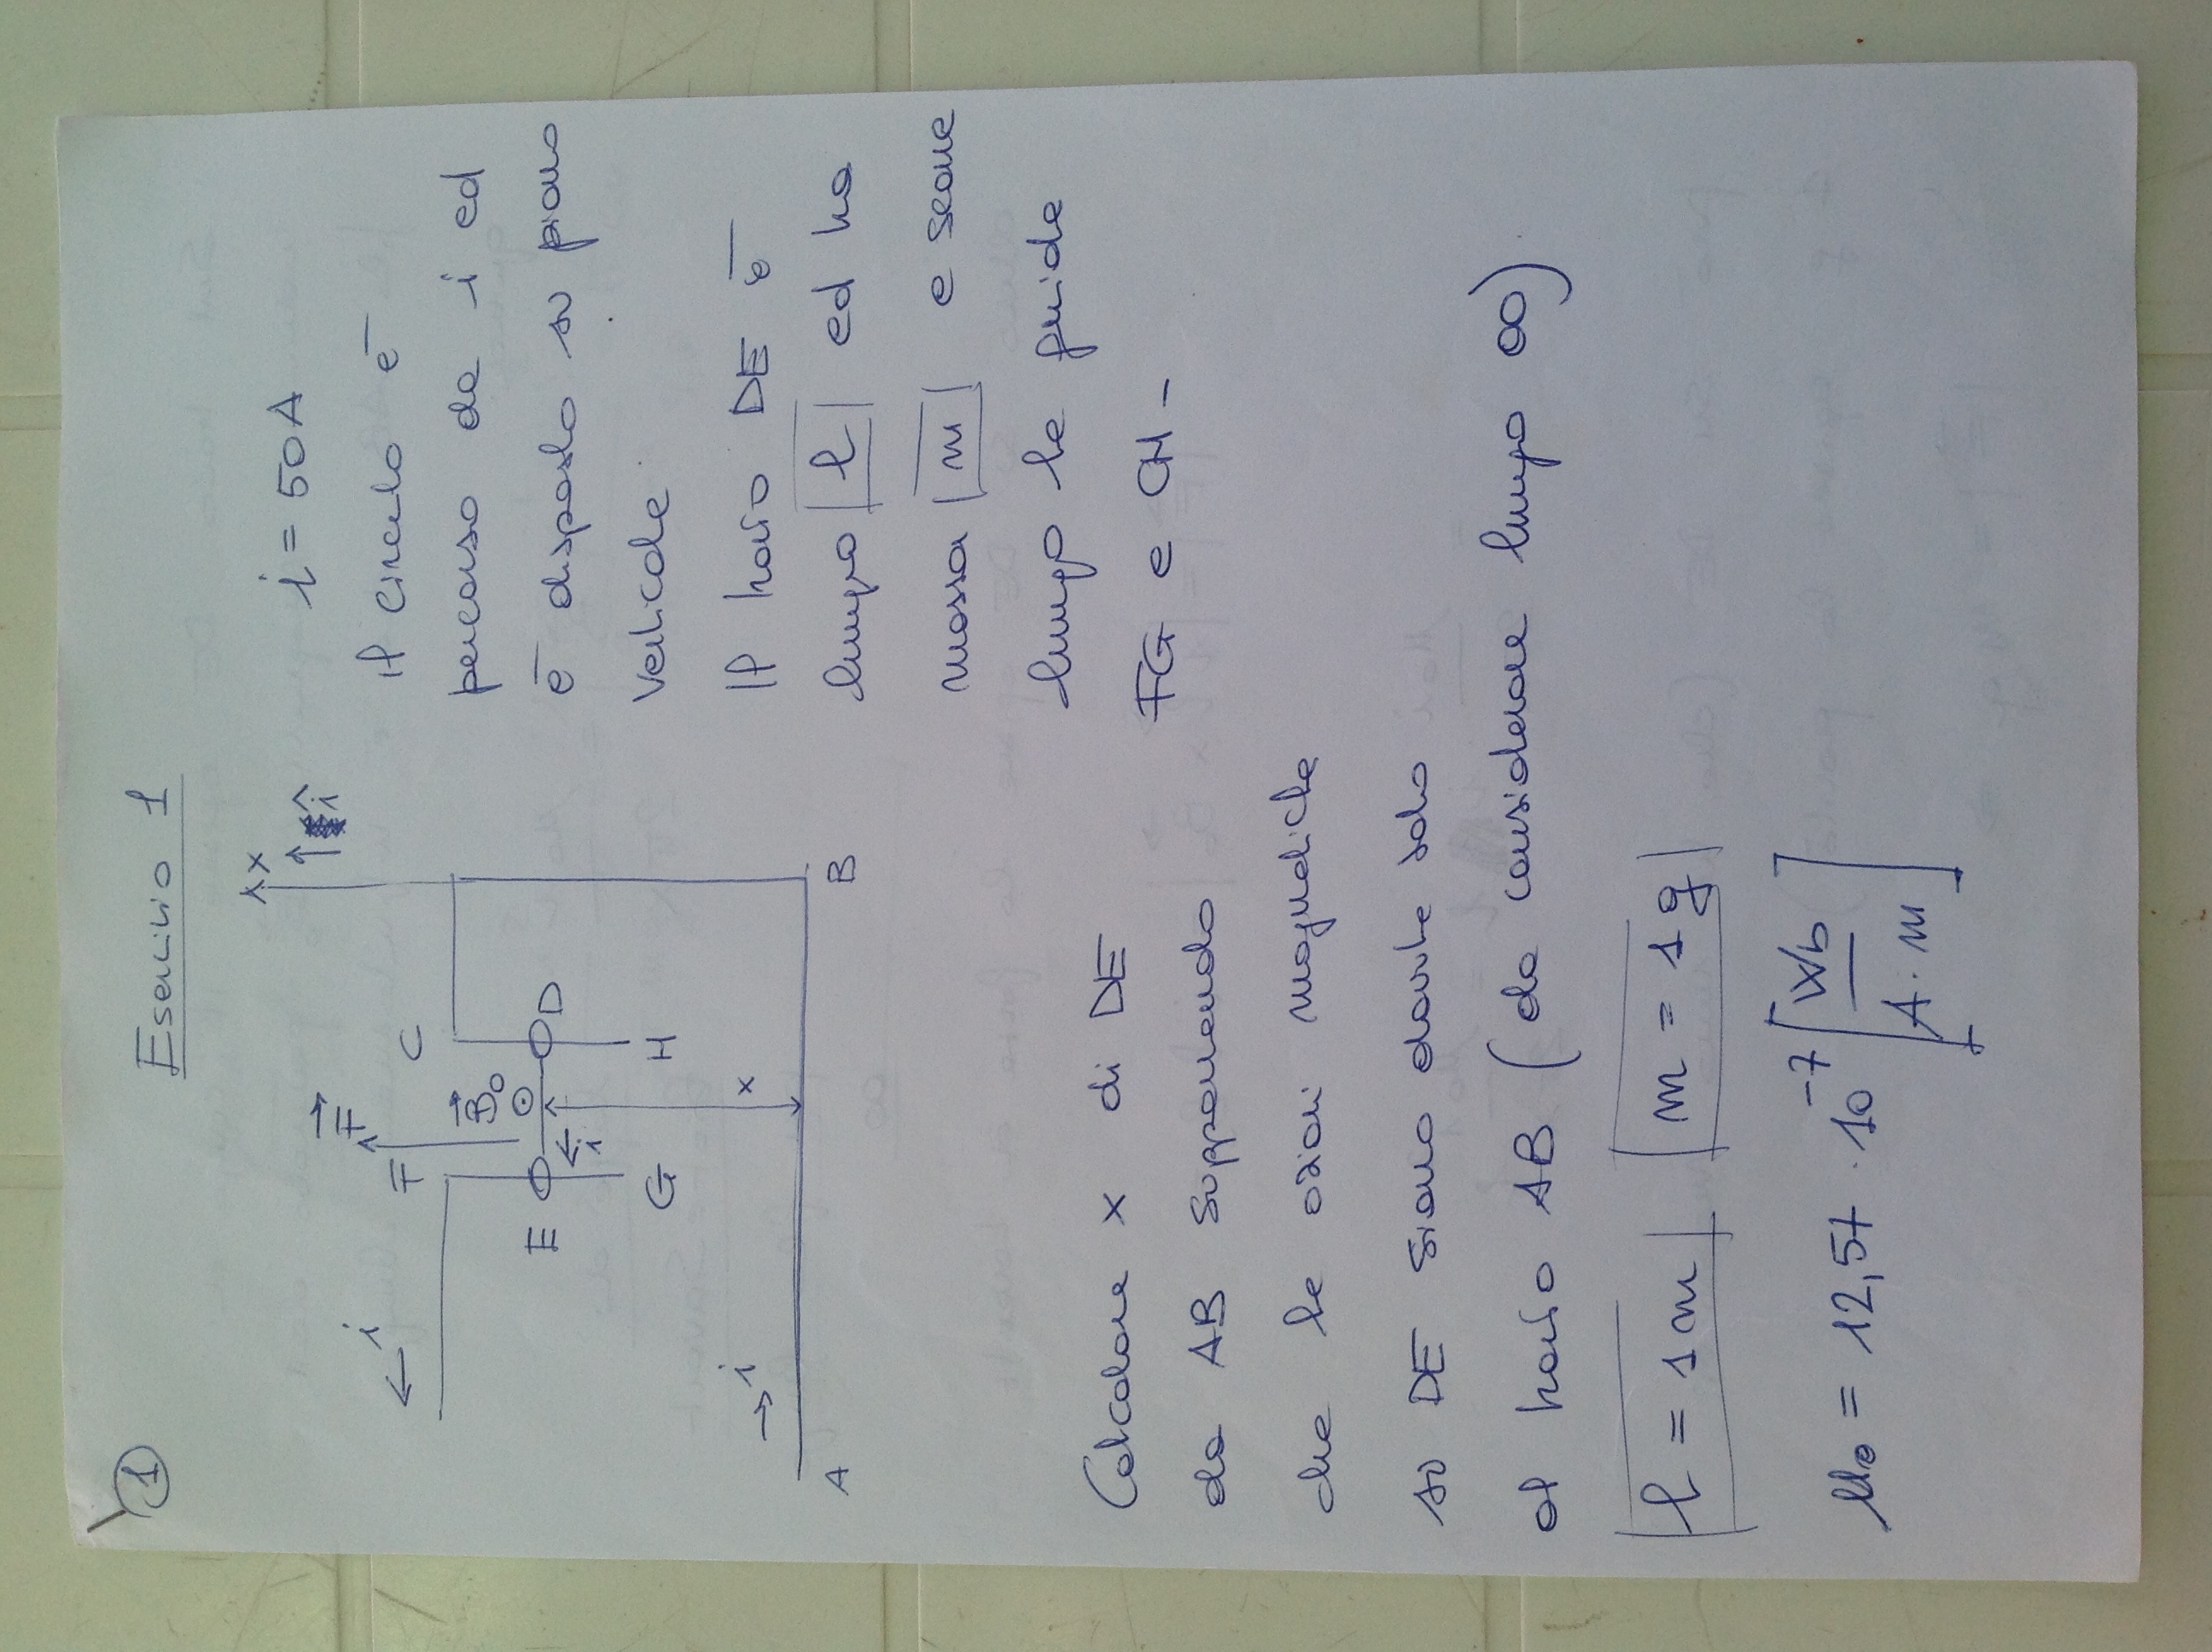 1
Esercizio 1
x
î
i
F
F
C
B₀
E
D
i
G
H
i
x
A
B
i = 50A
Il circuito è
percorso da i ed
è disposto su piano
verticale
Il tratto DE è
lungo l ed ha
massa m e scorre
lungo le guide
FG e CH -
Calcolare x di DE
da AB supponendo
che le azioni magnetiche
su DE siano dovute solo
al tratto AB (da considerare lungo ∞)
l = 1m m = 1g
μ₀ = 12,57 · 10⁻⁷ [Wb / A · m]